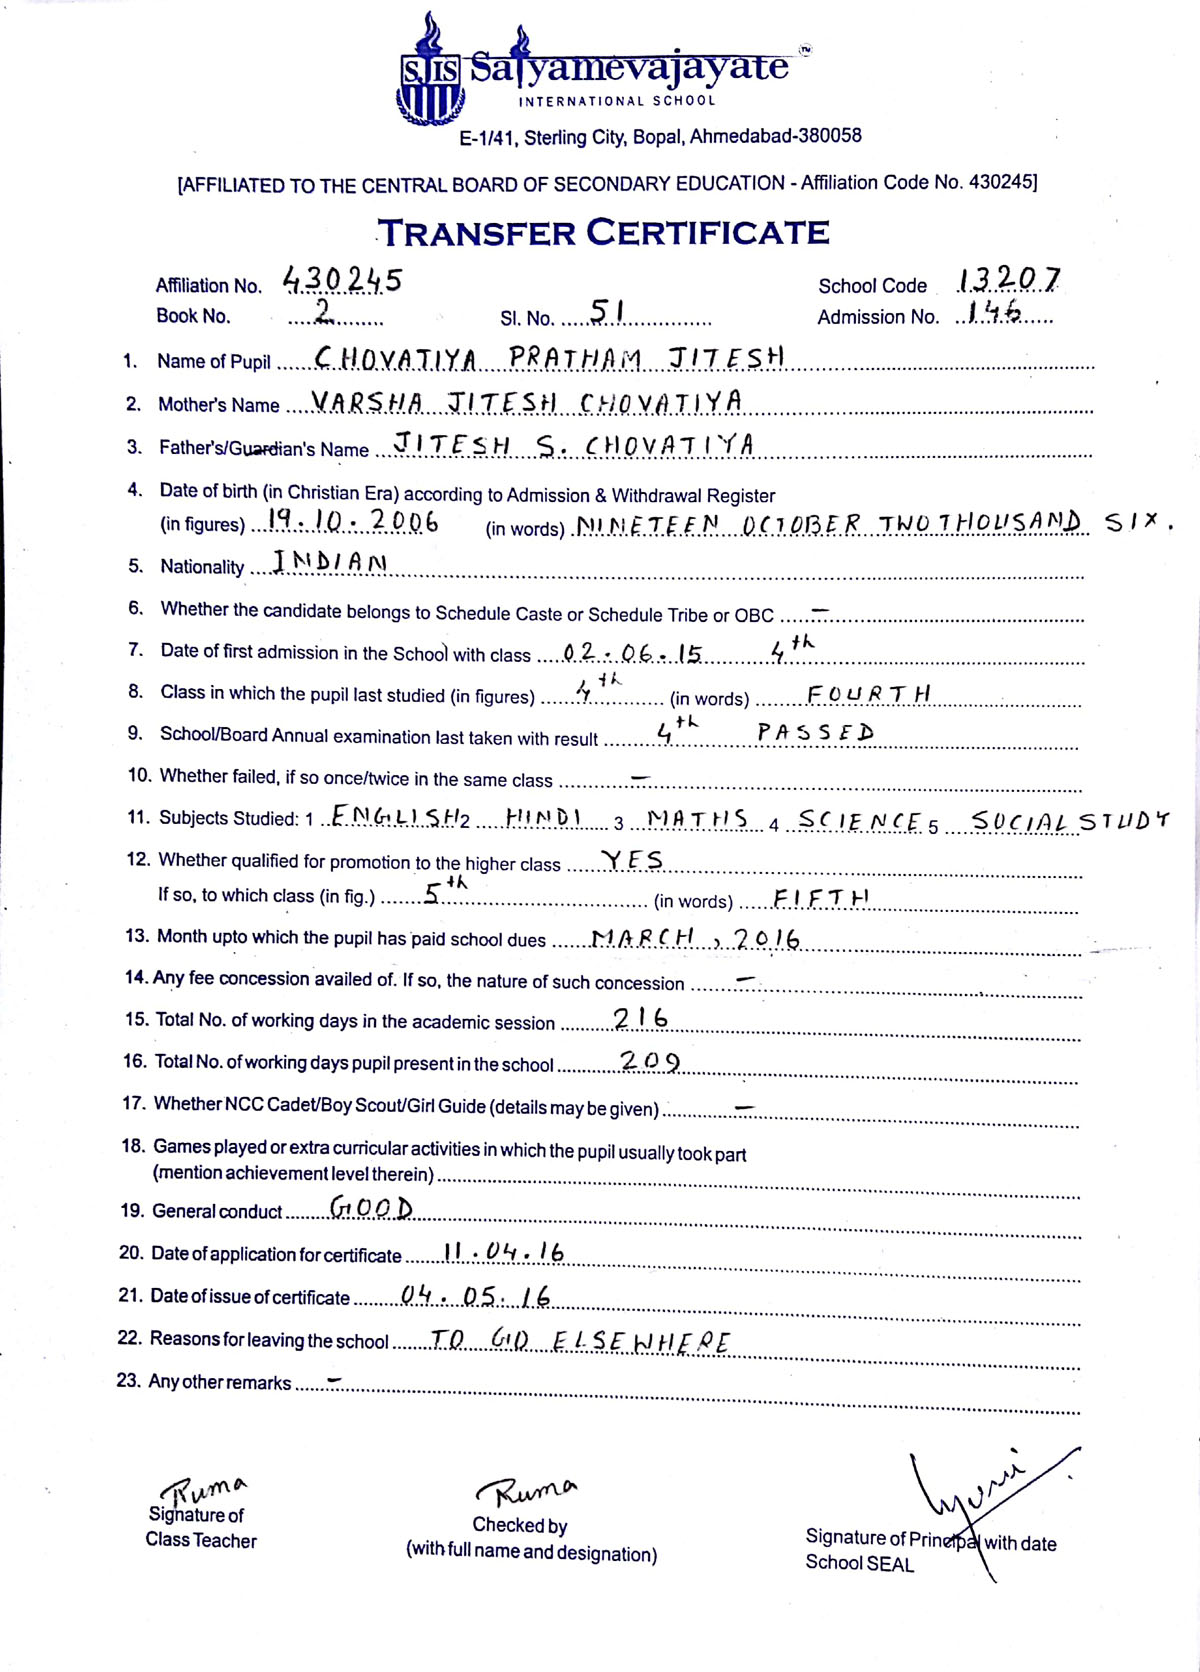 SIS Satyamevajayate TM
INTERNATIONAL SCHOOL
E-1/41, Sterling City, Bopal, Ahmedabad-380058
[AFFILIATED TO THE CENTRAL BOARD OF SECONDARY EDUCATION - Affiliation Code No. 430245]
TRANSFER CERTIFICATE
Affiliation No. 430245 School Code 13207
Book No. 2 Sl. No. 51 Admission No. 146
1. Name of Pupil CHOVATIYA PRATHAM JITESH
2. Mother's Name VARSHA JITESH CHOVATIYA
3. Father's/Guardian's Name JITESH S. CHOVATIYA
4. Date of birth (in Christian Era) according to Admission & Withdrawal Register
(in figures) 19.10.2006 (in words) NINETEEN OCTOBER TWO THOUSAND SIX.
5. Nationality INDIAN
6. Whether the candidate belongs to Schedule Caste or Schedule Tribe or OBC –
7. Date of first admission in the School with class 02.06.15 4th
8. Class in which the pupil last studied (in figures) 4th (in words) FOURTH
9. School/Board Annual examination last taken with result 4th PASSED
10. Whether failed, if so once/twice in the same class –
11. Subjects Studied: 1 ENGLISH 2 HINDI 3 MATHS 4 SCIENCE 5 SOCIAL STUDY
12. Whether qualified for promotion to the higher class YES
If so, to which class (in fig.) 5th (in words) FIFTH
13. Month upto which the pupil has paid school dues MARCH, 2016
14. Any fee concession availed of. If so, the nature of such concession –
15. Total No. of working days in the academic session 216
16. Total No. of working days pupil present in the school 209
17. Whether NCC Cadet/Boy Scout/Girl Guide (details may be given) –
18. Games played or extra curricular activities in which the pupil usually took part
(mention achievement level therein)
19. General conduct GOOD
20. Date of application for certificate 11.04.16
21. Date of issue of certificate 04.05.16
22. Reasons for leaving the school TO GO ELSEWHERE
23. Any other remarks –
Ruma Ruma
Signature of Checked by Signature of Principal with date
Class Teacher (with full name and designation) School SEAL